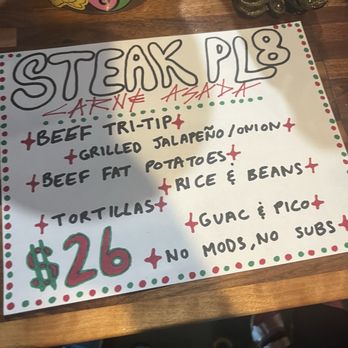 STEAK PL8
CARNE ASADA
BEEF TRI-TIP
GRILLED JALAPEÑO/ONION
BEEF FAT POTATOES
RICE & BEANS
TORTILLAS
GUAC & PICO
$26
NO MODS, NO SUBS